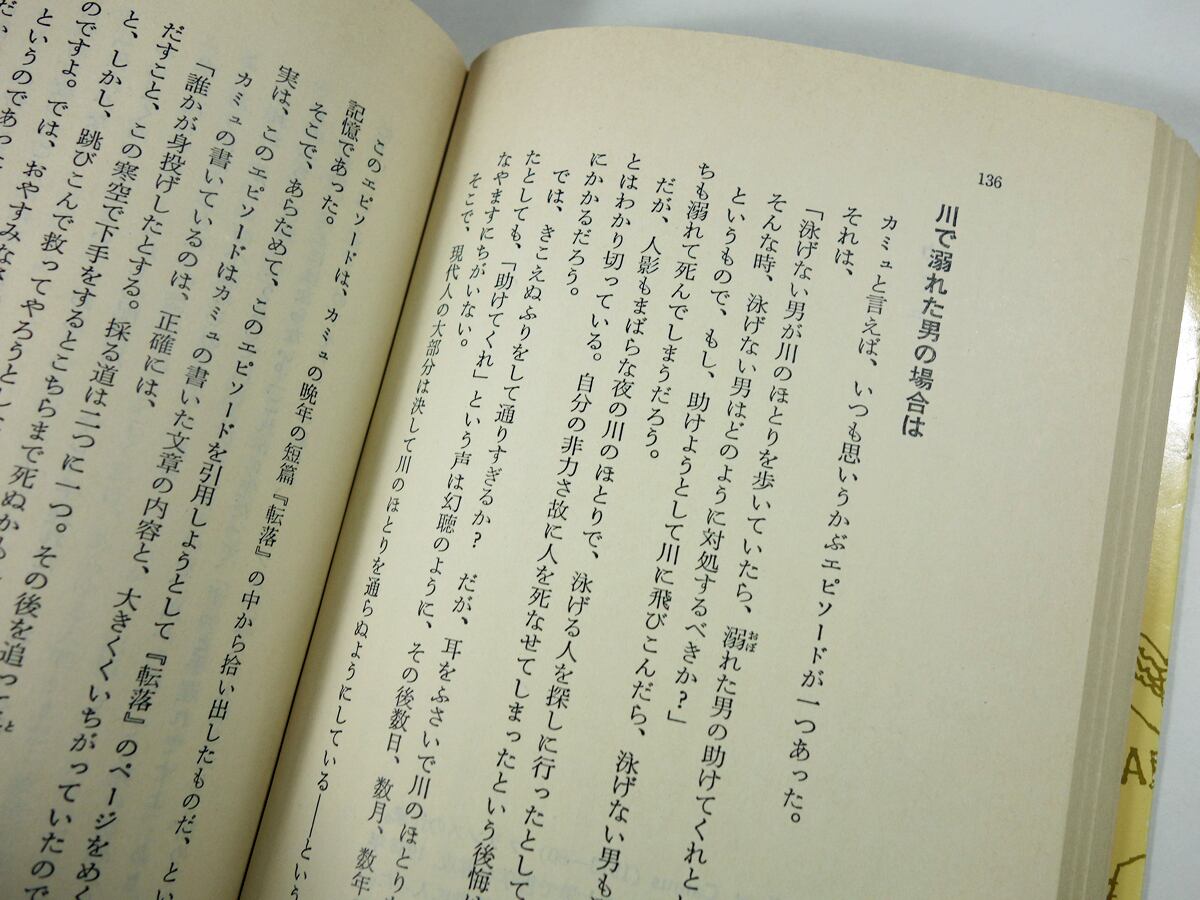 136
川で溺れた男の場合は
カミュと言えば、いつも思いうかぶエピソードが一つあった。
それは、
「泳げない男が川のほとりを歩いていたら、溺れた男の助けてくれと
そんな時、泳げない男はどのように対処するべきか？」
というもので、もし、助けようとして川に飛びこんだら、泳げない男も
ちも溺れて死んでしまうだろう。
だが、人影もまばらな夜の川のほとりで、泳げる人を探しに行ったとして
とはわかり切っている。自分の非力さ故に人を死なせてしまったという後悔
にかかるだろう。
では、きこえぬふりをして通りすぎるか？　だが、耳をふさいで川のほとり
たとしても、「助けてくれ」という声は幻聴のように、その後数日、数月、数年
なやますにちがいない。
そこで、現代人の大部分は決して川のほとりを通らぬようにしている――という
このエピソードは、カミュの晩年の短篇『転落』の中から拾い出したものだ、とい
記憶であった。
そこで、あらためて、このエピソードを引用しようとして『転落』のページをめく
実は、このエピソードはカミュの書いた文章の内容と、大きくくいちがっていたので
カミュの書いているのは、正確には、
「誰かが身投げしたとする。採る道は二つに一つ。その後を追って
だすこと、この寒空で下手をするとこちらまで死ぬかも
と、しかし、跳びこんで救ってやろうとし
のですよ。では、おやすみなさ
というのであった